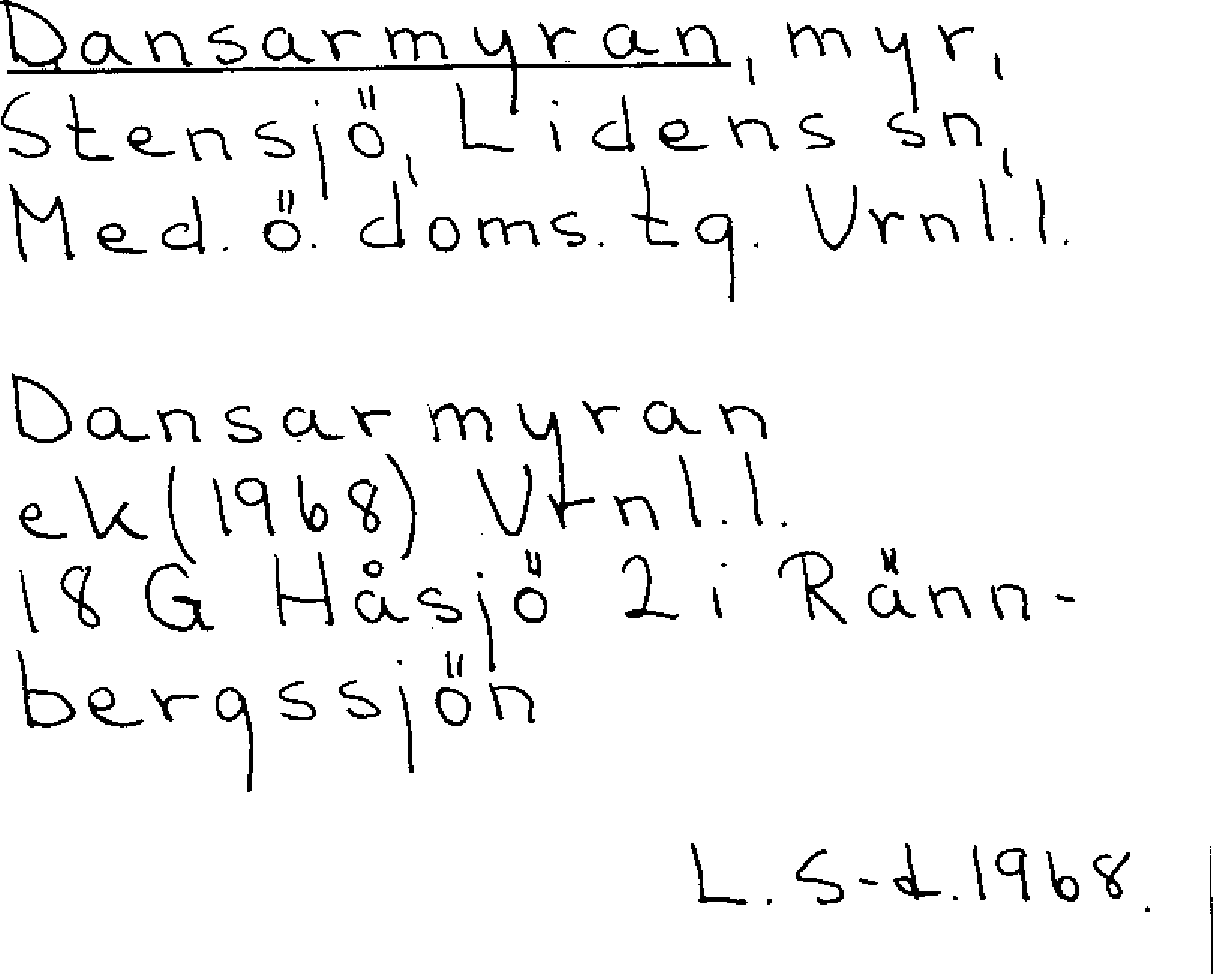 Dansarmyran, myr,
Stensjö, Lidens sn,
Med. ö. doms. tg. Vrnl.l.
Dansarmyran
ek (1968) Vrnl.l.
18 G Håsjö 2 i Ränn-
bergssjön
L. S-d. 1968.